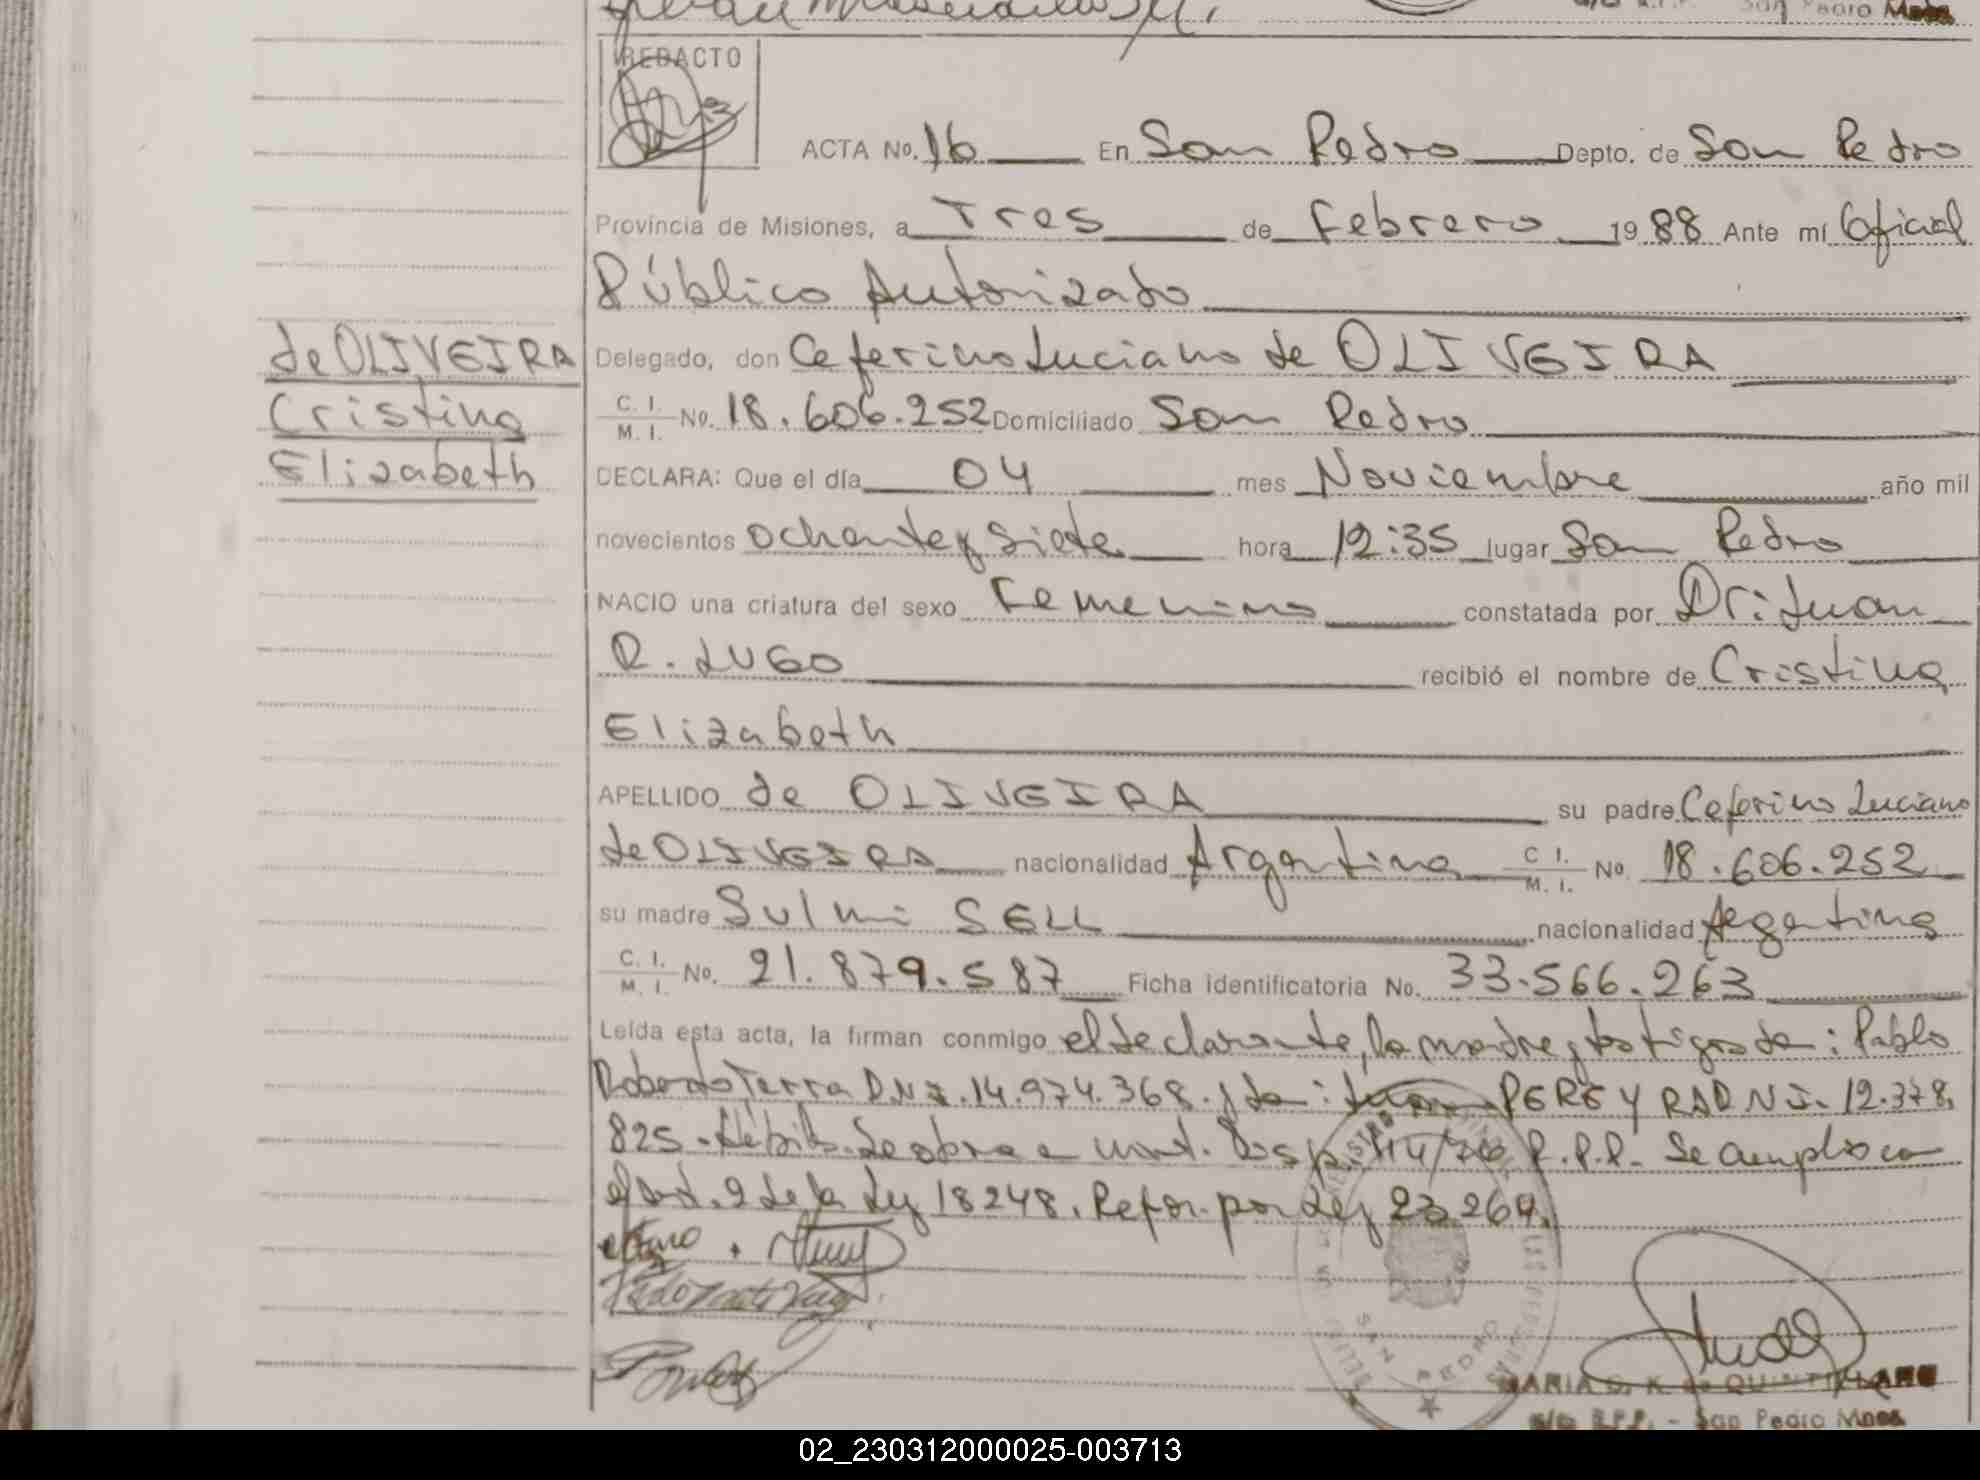 San Pedro Mnes.
REDACTO
ACTA No. 16 En San Pedro Depto. de San Pedro
Provincia de Misiones, a Tres de Febrero 1988 Ante mí Oficial
Público Autorizado
de OLIVEIRA Delegado, don Ceferino Luciano de OLIVEIRA
Cristina C. I. M. I. No. 18.606.252 Domiciliado San Pedro
Elizabeth DECLARA: Que el día 04 mes Noviembre año mil
novecientos ochenta y siete hora 12:35 lugar San Pedro
NACIO una criatura del sexo Femenino constatada por Dr: Juan
R. LUGO recibió el nombre de Cristina
Elizabeth
APELLIDO de OLIVEIRA su padre Ceferino Luciano
de OLIVEIRA nacionalidad Argentina C I. M. I. No. 18.606.252
su madre Sulmi SELL nacionalidad Argentina
C. I. M. I. No. 21.879.587 Ficha identificatoria No. 33.566.263
Leída esta acta, la firman conmigo el declarante, la madre y testigos de: Pablo
Roberto Terra D.N.I. 14.974.368. y de: Juan PEREYRA D N I. 12.378.
825. de obra Se amplio con
el art. 2 de la Ley 18248. Refor. por Ley 23.264.
SAN PEDRO
MARIA de QUINTANA
R.P.P. - San Pedro Mnes.
02_230312000025-003713